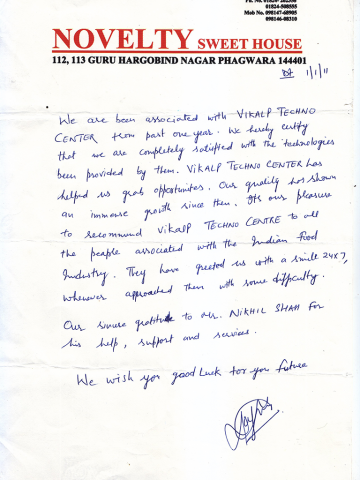 01824-508555
Mob No. 098147-68905
098146-08310
NOVELTY SWEET HOUSE
112, 113 GURU HARGOBIND NAGAR PHAGWARA 144401
Dt 1/1/11
We are been associated with VIKALP TECHNO
CENTER from past one year. We hereby certify
that we are completely satisfied with the technologies
been provided by them. VIKALP TECHNO CENTER has
helped us grab opportunities. Our quality has shown
an immense growth since then. Its our pleasure
to recommend VIKALP TECHNO CENTRE to all
the people associated with the Indian food
Industry. They have greeted us with a smile 24x7,
whenever approached them with some difficulty.
Our sincere gratitude to mr. NIKHIL SHAH for
his help, support and services.
We wish you good luck for you future